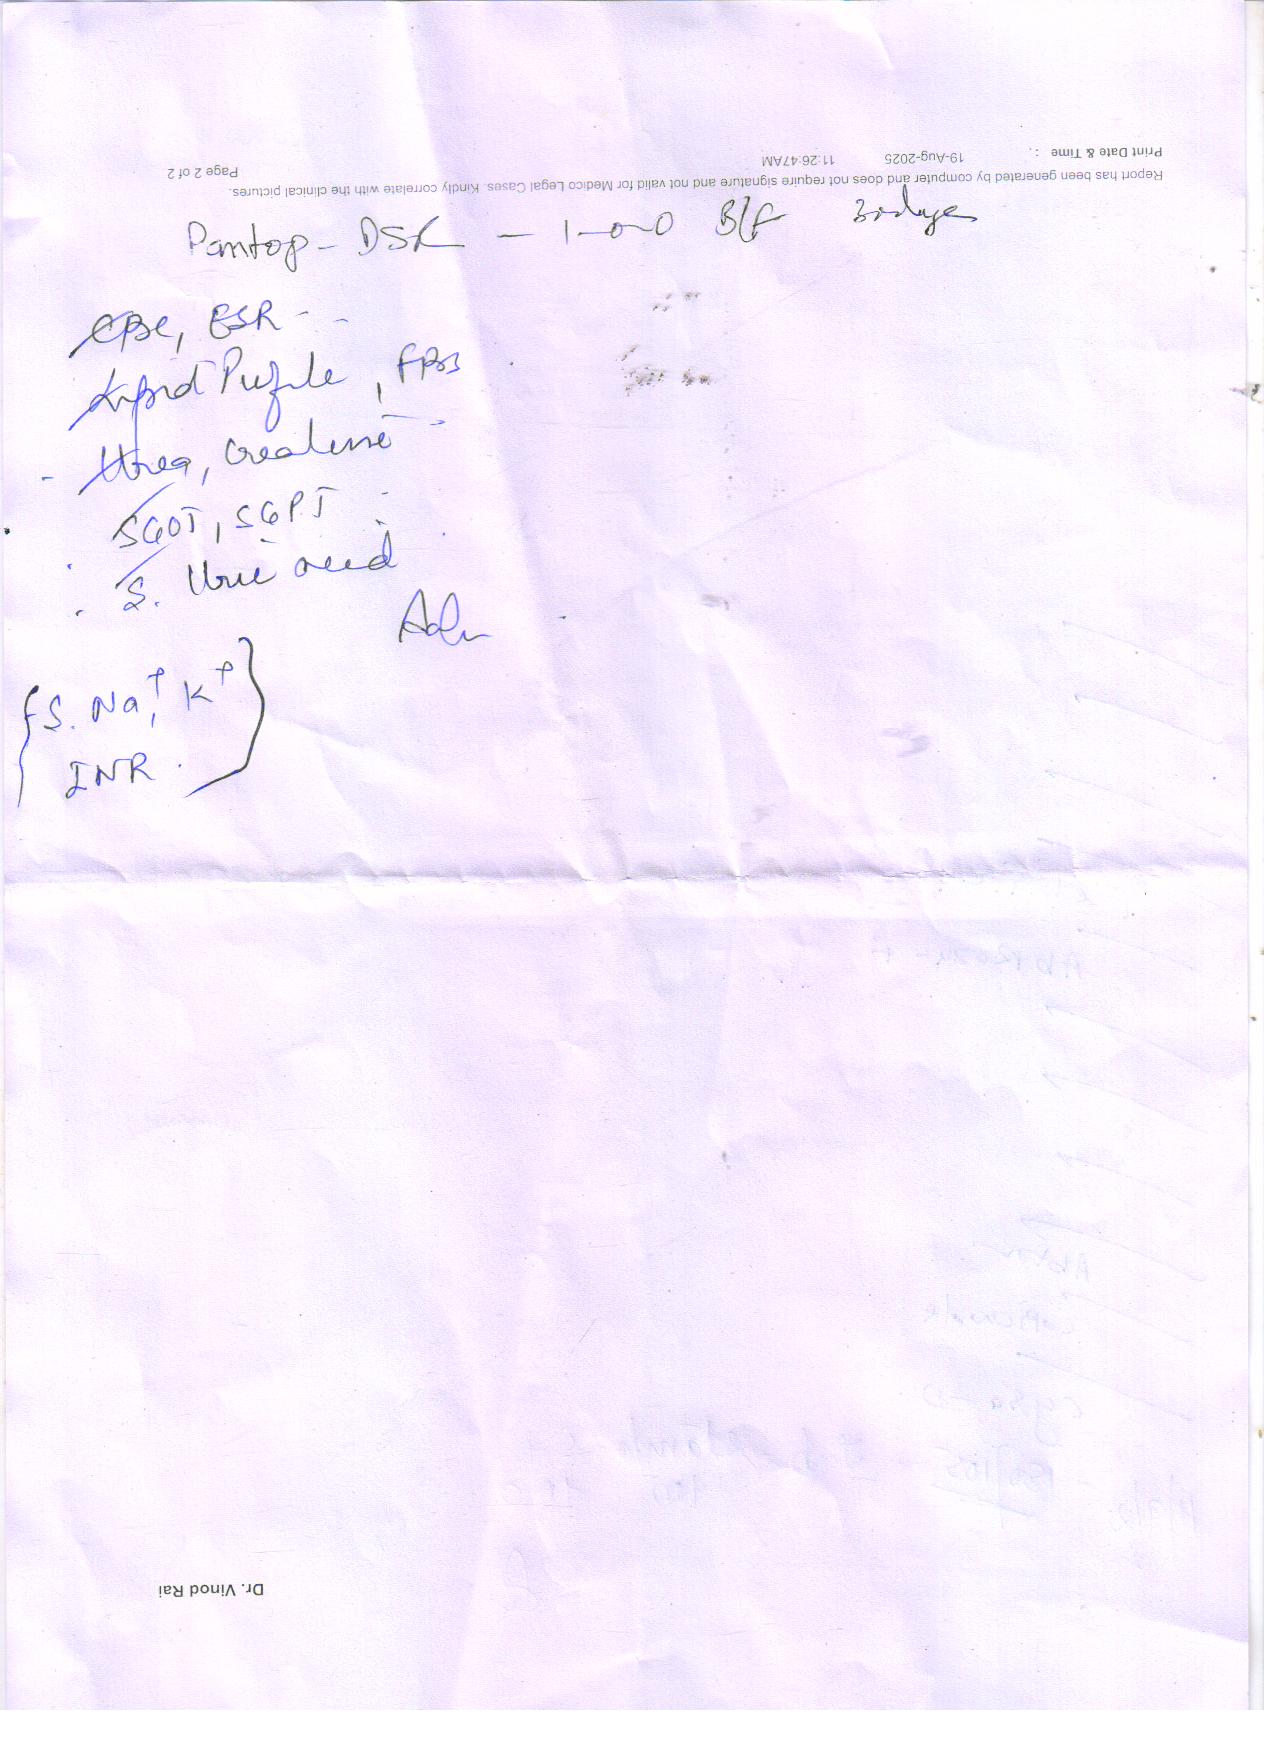 Print Date & Time :. 19-Aug-2025 11:26:47AM Page 2 of 2
Report has been generated by computer and does not require signature and not valid for Medico Legal Cases. Kindly correlate with the clinical pictures.
Pantop-DSR - 1-0-0 B/F 30 days
CBC, ESR
Lipid Profile, FBS
Urea, Creatinine
SGOT, SGPT
S. Uric acid
S. Na+, K+
INR.
Dr. Vinod Rai